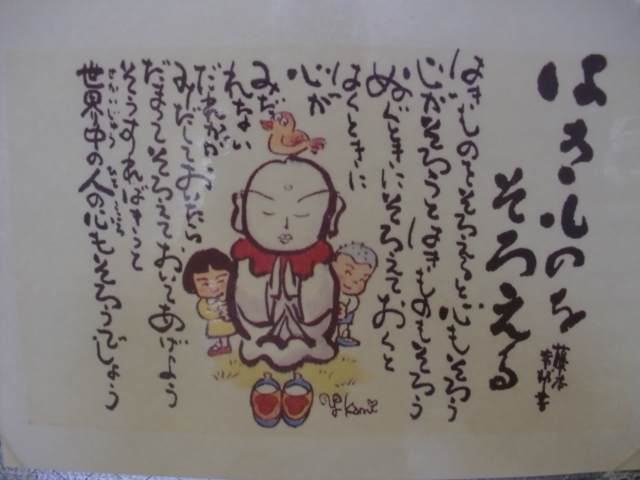 はきものを
そろえる
藤本
幸邦
はきものをそろえると心もそろう
心がそろうとはきものもそろう
ぬぐときにそろえておくと
はくときに
心が
みだ
れない
だれかが
みだしておいたら
だまってそろえておいてあげよう
そうすればきっと
世界中の人の心もそろうでしょう